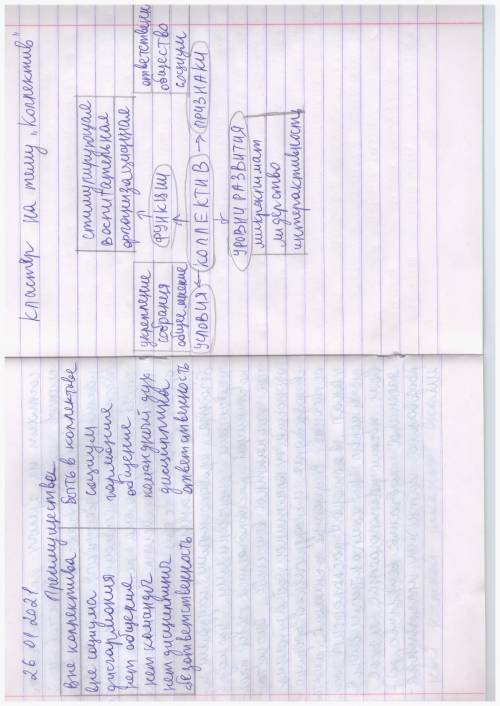 26 01 2021
Преимущества
вне коллектива быть в коллективе
вне социума социум
дисгармония гармония
нет общения общение
нет команды командный дух
нет дисциплины дисциплина
безответственность ответственность
Кластер на тему „Коллектив"
стимулирующая
воспитательная
организационная
ответственн
общество
социум
укрепление
собрания
общее мнение
ФУНКЦИИ
УСЛОВИЯ ← КОЛЛЕКТИВ → ПРИЗНАКИ
УРОВНИ РАЗВИТИЯ
микроклимат
лидерство
интерактивность